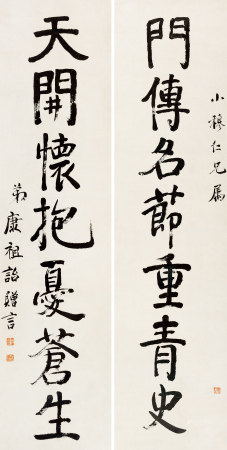 小穆仁兄属
門傳名節重青史
天開懷抱憂蒼生
弟康祖詒贈言